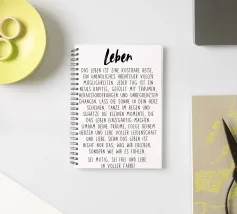 Leben
DAS LEBEN IST EINE KOSTBARE REISE,
EIN UNENDLICHES ABENTEUER VOLLER
MÖGLICHKEITEN. JEDER TAG IST EIN
NEUES KAPITEL, GEFÜLLT MIT TRÄUMEN,
HERAUSFORDERUNGEN UND UNBEGRENZTEN
CHANCEN. LASS DIE SONNE IN DEIN HERZ
SCHEINEN, TANZE IM REGEN UND
SCHÄTZE DIE KLEINEN MOMENTE, DIE
DAS LEBEN EINZIGARTIG MACHEN.
UMARM DEINE TRÄUME, FOLGE DEINEM
HERZEN UND LEBE VOLLER LEIDENSCHAFT
UND LIEBE. DENN DAS LEBEN IST
NICHT NUR DAS, WAS WIR ERLEBEN,
SONDERN WIE WIR ES FÜHLEN.
SEI MUTIG, SEI FREI UND LEBE
IN VOLLER FARBE!